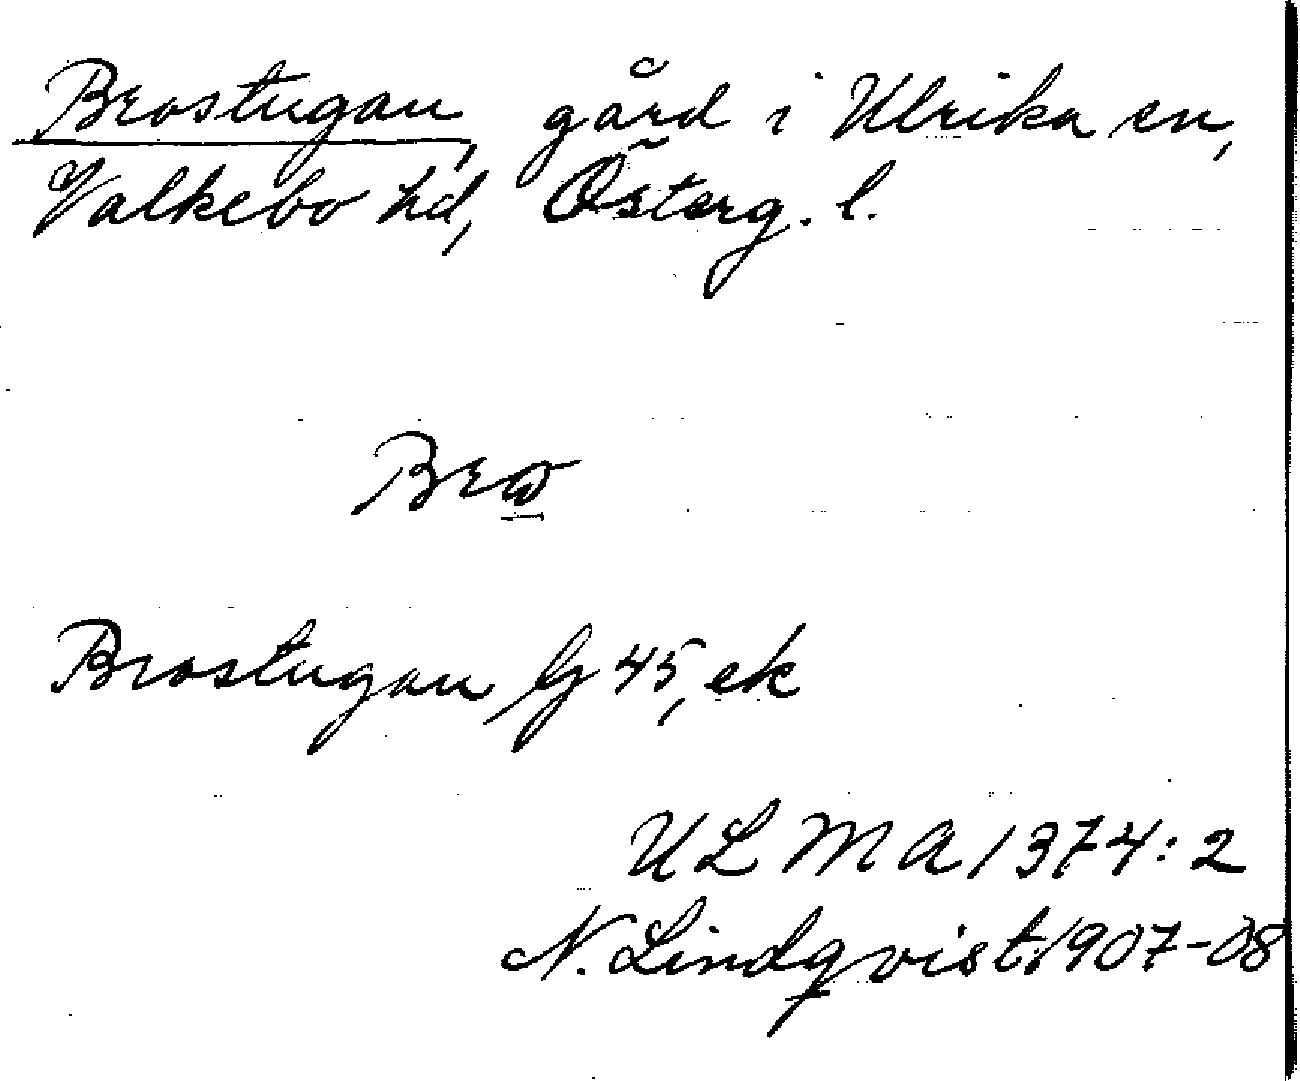 Brostugan, gård i Ulrika sn,
Valkebo hd, Österg. l.
Bro
Brostugan G 45, ek
ULMA 1374:2
N. Lindqvist 1907-08